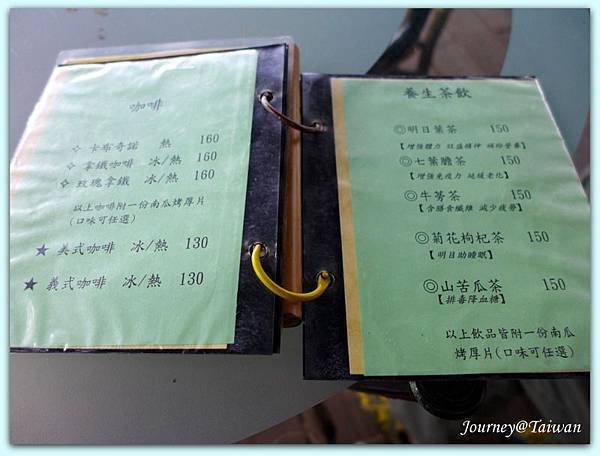 咖啡
◇ 卡布奇諾 熱 160
◇ 拿鐵咖啡 冰/熱 160
◇ 玫瑰拿鐵 冰/熱 160
以上咖啡附一份南瓜烤厚片
(口味可任選)
★ 美式咖啡 冰/熱 130
★ 義式咖啡 冰/熱 130
養生茶飲
◎明日葉茶 150
【增強體力 旺盛精神 補給營養】
◎七葉膽茶 150
【增強免疫力 延緩老化】
◎牛蒡茶 150
【含膳食纖維 減少疲勞】
◎菊花枸杞茶 150
【明目助睡眠】
◎山苦瓜茶 150
【排毒降血糖】
以上飲品皆附一份南瓜
烤厚片(口味可任選)
Journey@Taiwan